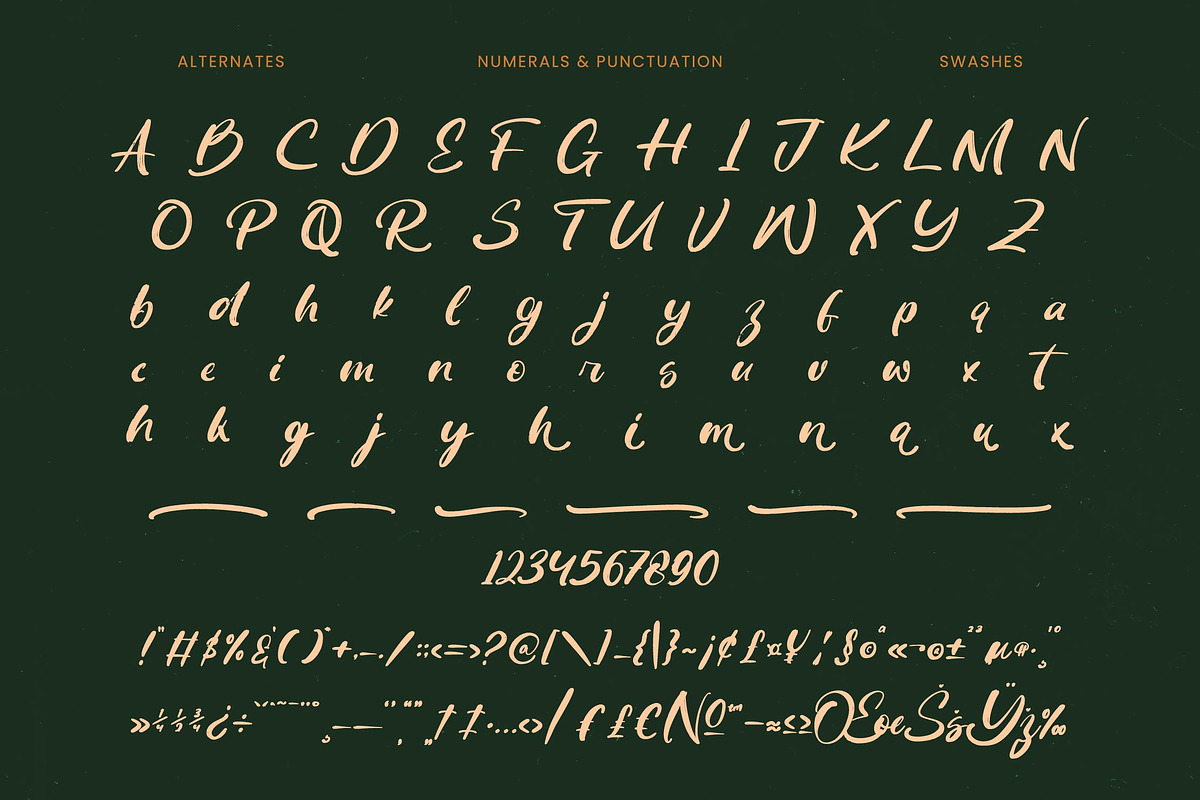 ALTERNATES NUMERALS & PUNCTUATION SWASHES
A B C D E F G H I J K L M N
O P Q R S T U V W X Y Z
b d h k l g j y z f p q a
c e i m n o r s u v w x t
h k g j y h i m n a u x
1234567890
!"#$%&'()*+,-./:;<=>?@[\]_{|}~¡¢£¤¥¦§©ª«¬®±²³µ¶·¸¹º
»¼½¾¿÷–—‘’‚“”„†‡•…‹›⁄ƒ₤€№™−≈≤≥ŒœŠšŸž‰